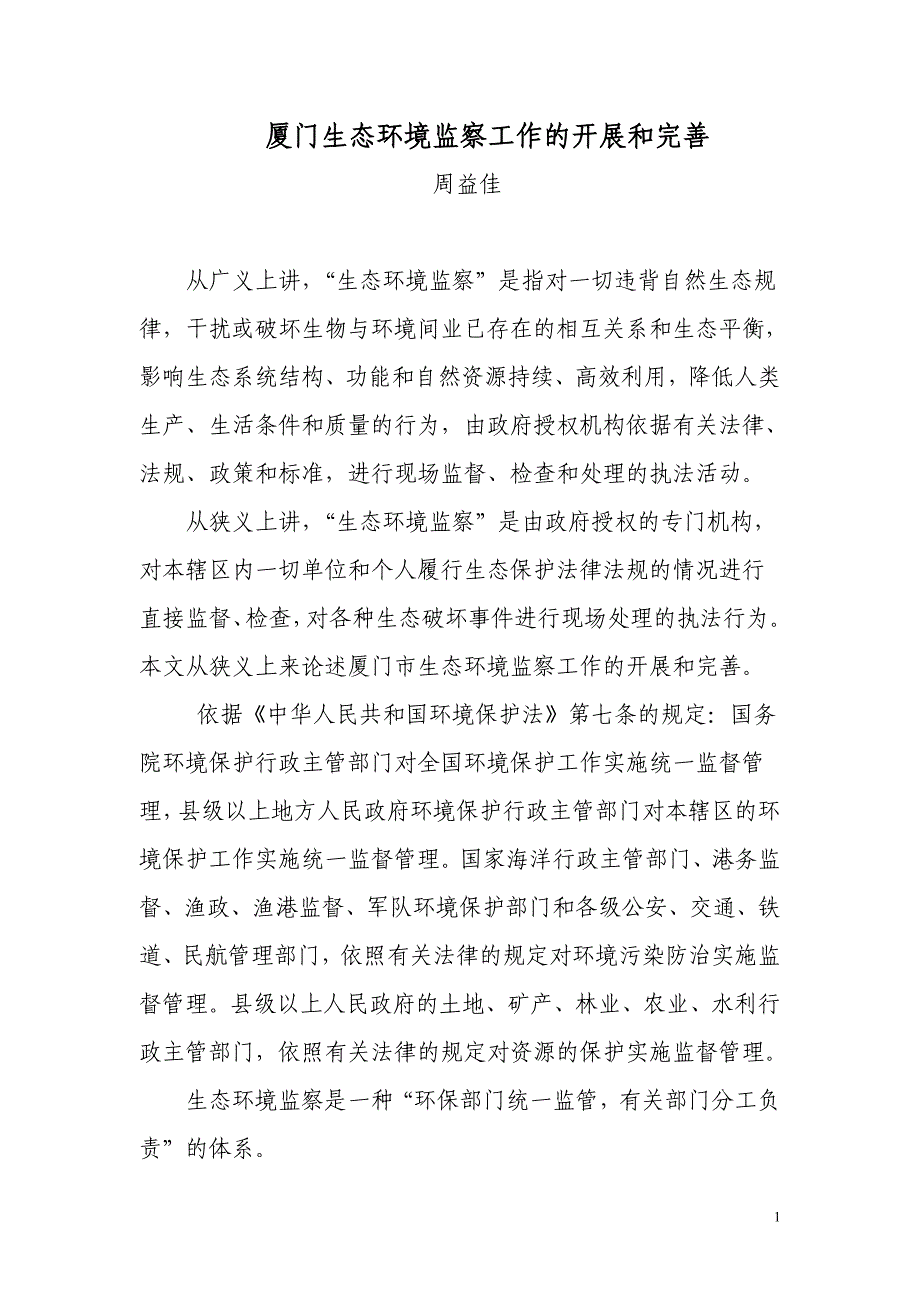 厦门生态环境监察工作的开展和完善
周益佳
从广义上讲，“生态环境监察”是指对一切违背自然生态规
律，干扰或破坏生物与环境间业已存在的相互关系和生态平衡，
影响生态系统结构、功能和自然资源持续、高效利用，降低人类
生产、生活条件和质量的行为，由政府授权机构依据有关法律、
法规、政策和标准，进行现场监督、检查和处理的执法活动。
从狭义上讲，“生态环境监察”是由政府授权的专门机构，
对本辖区内一切单位和个人履行生态保护法律法规的情况进行
直接监督、检查，对各种生态破坏事件进行现场处理的执法行为。
本文从狭义上来论述厦门市生态环境监察工作的开展和完善。
依据《中华人民共和国环境保护法》第七条的规定：国务
院环境保护行政主管部门对全国环境保护工作实施统一监督管
理，县级以上地方人民政府环境保护行政主管部门对本辖区的环
境保护工作实施统一监督管理。国家海洋行政主管部门、港务监
督、渔政、渔港监督、军队环境保护部门和各级公安、交通、铁
道、民航管理部门，依照有关法律的规定对环境污染防治实施监
督管理。县级以上人民政府的土地、矿产、林业、农业、水利行
政主管部门，依照有关法律的规定对资源的保护实施监督管理。
生态环境监察是一种“环保部门统一监管，有关部门分工负
责”的体系。
1